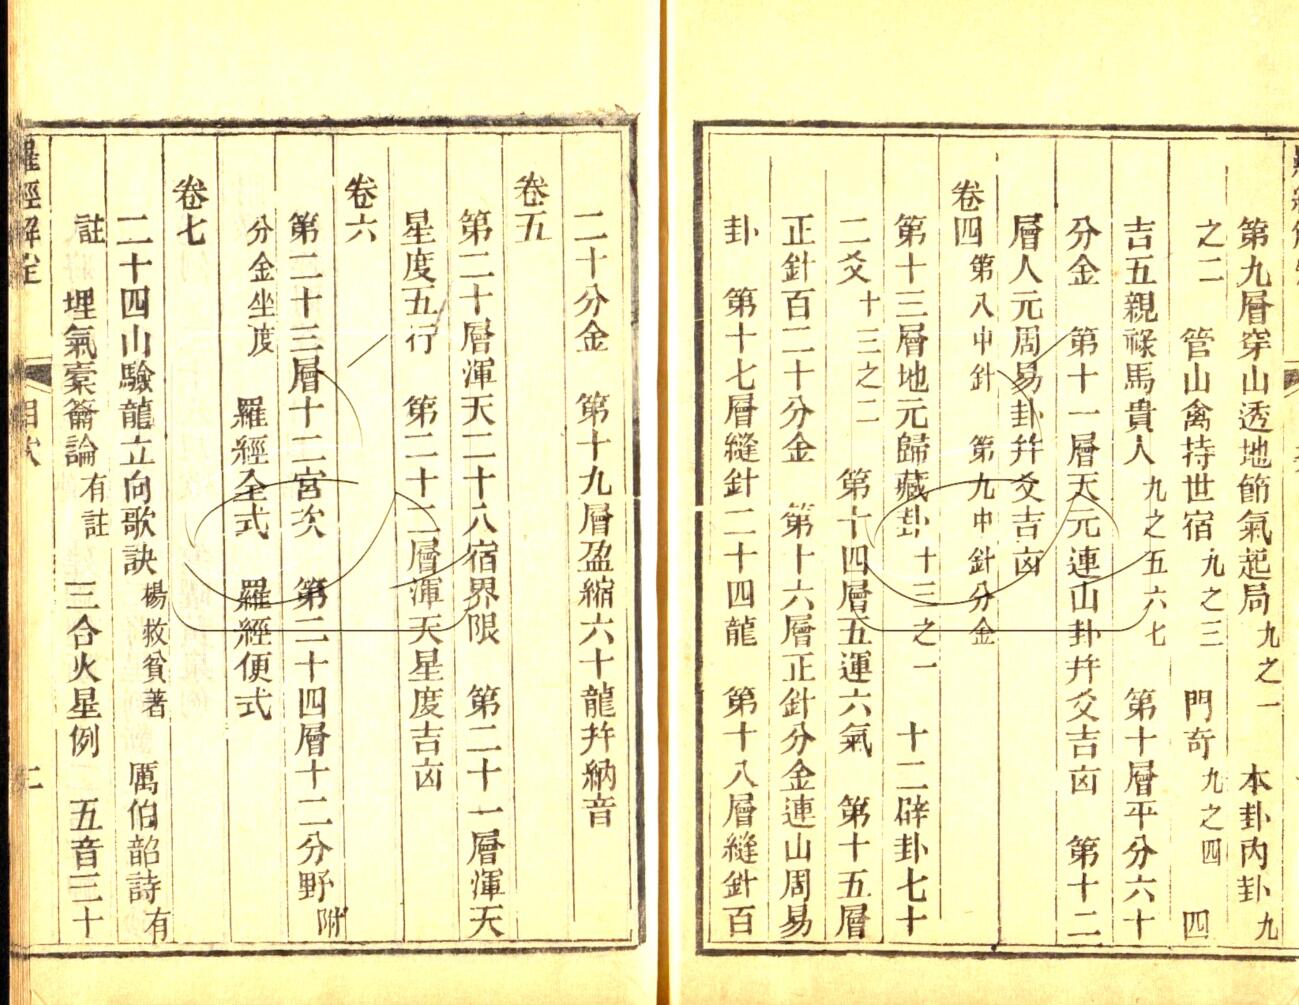 第九層穿山透地節氣起局九之一 本卦內卦九
之二 管山禽持世宿九之三 門奇九之四 四
吉五親祿馬貴人九之五六七 第十層平分六十
分金 第十一層天元連山卦并爻吉凶 第十二
層人元周易卦并爻吉凶
卷四第八中針 第九中針分金
第十三層地元歸藏卦十三之一 十二辟卦七十
二爻十三之二 第十四層五運六氣 第十五層
正針百二十分金 第十六層正針分金連山周易
卦 第十七層縫針二十四龍 第十八層縫針百
二十分金 第十九層盈縮六十龍并納音
卷五
第二十層渾天二十八宿界限 第二十一層渾天
星度五行 第二十二層渾天星度吉凶
卷六
第二十三層十二宮次 第二十四層十二分野附
分金坐度 羅經全式 羅經便式
卷七
二十四山驗龍立向歌訣楊救貧著 厲伯韶詩有
註 埋氣橐籥論有註 三合火星例 五音三十
羅經解定 目次 二